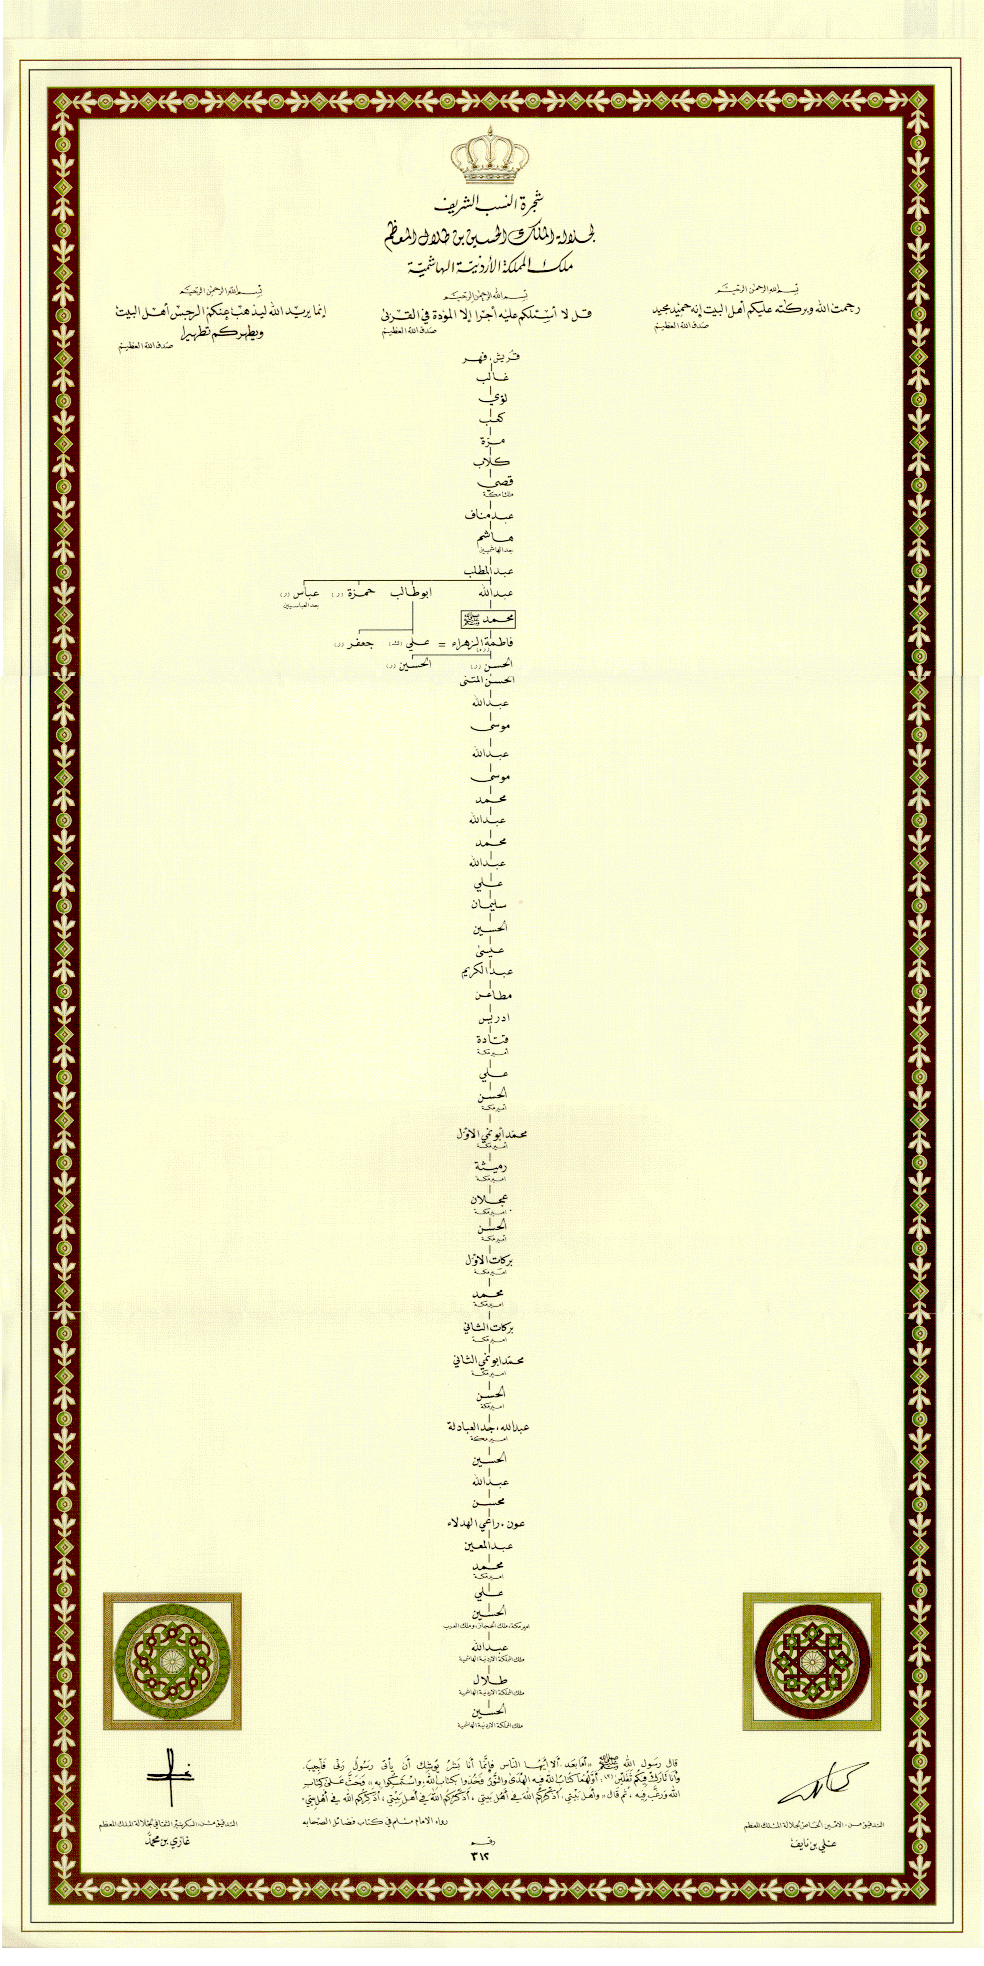 شجرة النسب الشريف
لجلالة الملك الحسين بن طلال المعظم
ملك المملكة الأردنيّة الهاشميّة
بسم الله الرحمن الرحيم
رحمت الله وبركته عليكم أهل البيت إنه حميد مجيد
صدق الله العظيم
بسم الله الرحمن الرحيم
قل لا أسئلكم عليه أجرا إلا المودة في القربى
صدق الله العظيم
بسم الله الرحمن الرحيم
إنما يريد الله ليذهب عنكم الرجس أهل البيت
ويطهركم تطهيرا
صدق الله العظيم
قريش، فهر
غالب
لؤي
كعب
مرة
كلاب
قصي
ملك مكة
عبد مناف
هاشم
جد الهاشميين
عبد المطلب
عبد الله ابو طالب حمزة (ر) عباس (ر)
جد العباسيين
محمد ﷺ
فاطمة الزهراء = علي جعفر (ر)
الحسن (ر) الحسين (ر)
الحسن المثنى
عبدالله
موسى
عبدالله
موسى
محمد
عبدالله
محمد
عبدالله
علي
سليمان
الحسين
عيسى
عبد الكريم
مطاعن
ادريس
قتادة
أمير مكة
علي
الحسن
أمير مكة
محمد أبو نمي الاوّل
أمير مكة
رميثة
امير مكة
عجلان
امير مكة
الحسن
أمير مكة
بركات الاوّل
امير مكة
محمد
امير مكة
بركات الثاني
امير مكة
محمّد ابو نمي الثاني
امير مكة
الحسن
امير مكة
عبدالله، جد العبادلة
امير مكة
الحسين
عبدالله
محسن
عون، راعي الهدلاء
عبد المعين
محمد
امير مكة
علي
الحسين
امير مكة، ملك الحجاز، وملك العرب
عبدالله
ملك المملكة الاردنية الهاشمية
طلال
ملك المملكة الاردنية الهاشمية
الحسين
ملك المملكة الاردنية الهاشمية
قال رسول الله ﷺ «أما بعد. ألا أيها الناس فإنما أنا بشر يوشك أن يأتي رسول ربي فأجيب.
وأنا تارك فيكم ثقلين (٢). أولهما كتاب الله فيه الهدى والنور فخذوا بكتاب الله. واستمسكوا به» فحث على كتاب
الله ورغب فيه، ثم قال «وأهل بيتي. أذكركم الله في أهل بيتي، أذكركم الله في أهل بيتي، أذكركم الله في أهل بيتي»
رواه الامام مسلم في كتاب فضائل الصحابه
التدقيق من: الامين الخاص لجلالة الملك المعظم
علي بن نايف
التدقيق من: السكرتير الثقافي لجلالة الملك المعظم
غازي بن محمد
رقم
٣١٢